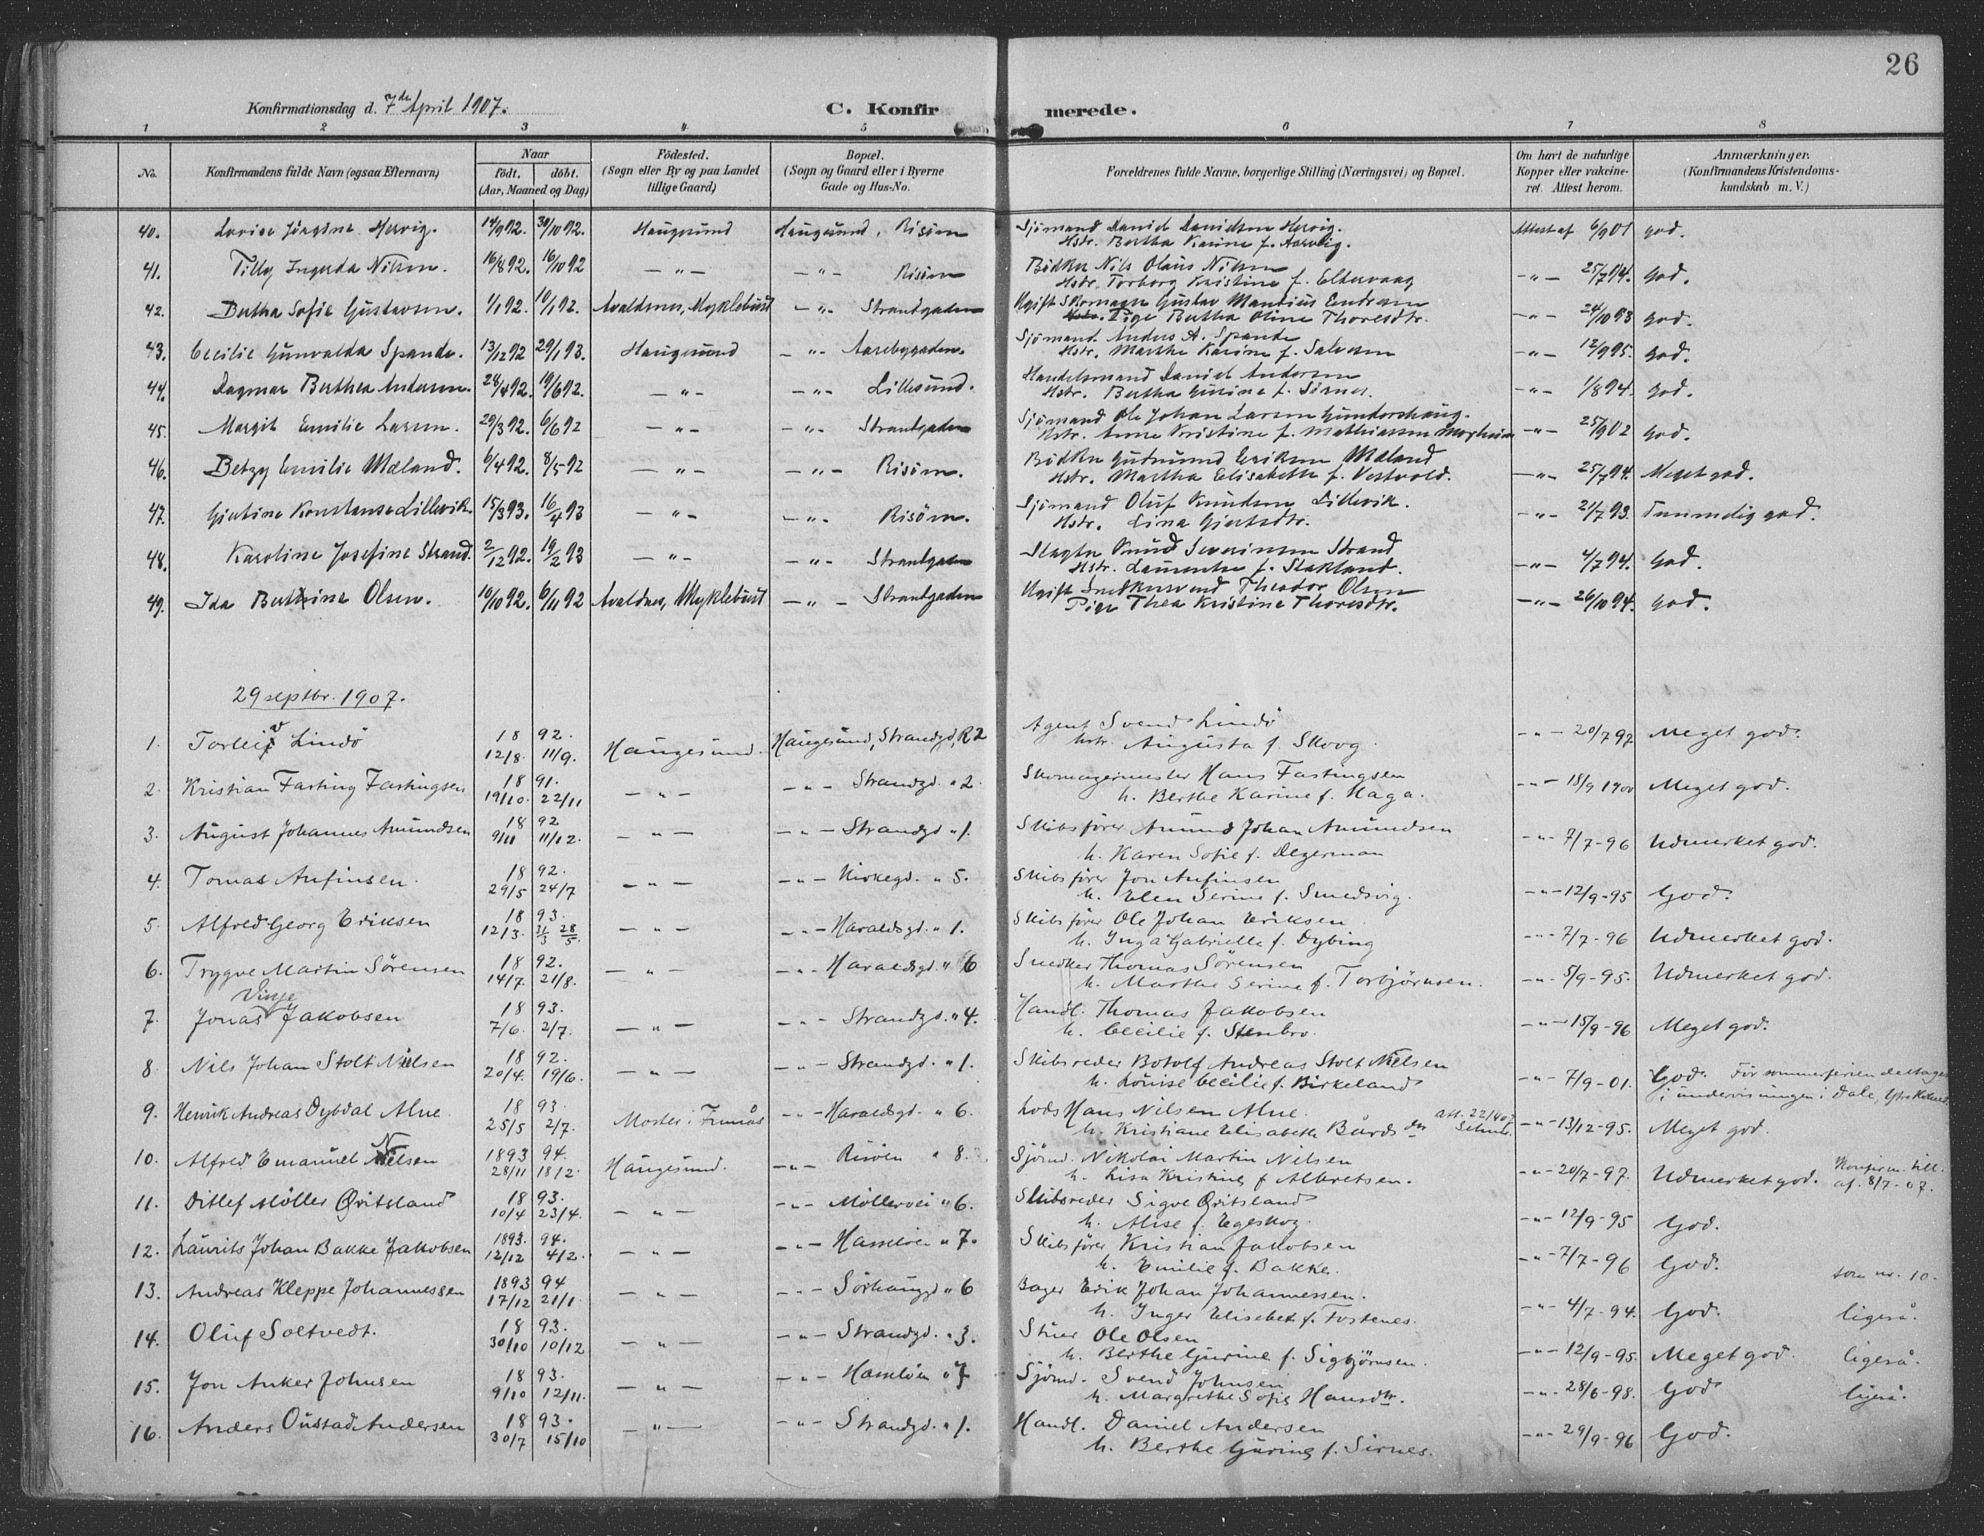 26
Konfirmationsdag d. 7de April 1907. C. Konfirmerede.
1 2 3 4 5 6 7 8
No. Konfirmandens fulde Navn (ogsaa Efternavn) Naar født. døbt. (Aar, Maaned og Dag) Fødested. (Sogn eller By og paa Landet tillige Gaard) Bopæl. (Sogn og Gaard eller i Byerne Gade og Hus-No. Forældrenes fulde Navne, borgerlige Stilling (Næringsvei) og Bopæl. Om havt de naturlige Kopper eller vaccineret. Attest herom. Anmærkninger. (Konfirmandens Kristendomskundskab m. V.)
40. Lovise Jørgine Hervig. 14/9 92. 30/10 92. Haugesund Haugesund, Risøen Sjømand Daniel Danielsen Hervig. Attest af 6/9 01 god.
Hstr. Bertha Karine f. Aarvig.
41. Tilly Ingerda Nilsen. 16/8 92. 16/10 92 — " — — " — Risøen Bødker Nils Olaus Nilsen — " — 25/7 94. God.
Hstr. Torborg Kristine f. Eltervaag
42. Bertha Sofie Gustavsen. 1/1 92. 10/1 92. Avaldsnes, Myklebust — " — Strandgaden Ugift Skomager Gustav Mantius Endresen — " — 24/10 93 god.
Pige Bertha Oline Thoresdtr.
43. Cecilie Gunvalda Spande. 13/12 92 29/1 93. Haugesund — " — Aasebygaden. Sjømand Anders A. Spande — " — 12/9 95. God.
Hstr. Marthe Karine f. Salvesen
44. Dagmar Berthea Andersen. 28/4 92. 19/6 92. — " — — " — Lillesund. Handelsmand Daniel Andersen — " — 1/8 94. God.
Hstr. Bertha Gurine f. Sirnes.
45. Margit Emilie Larsen. 29/3 92. 6/6 92 — " — — " — Strandgaden Sjømand Ole Johan Larsen Gundershaug. — " — 25/9 02 God.
Hstr. Anne Kristine f. Mathiassen
46. Betzy Emilie Mæland. 6/4 92. 8/5 92 — " — — " — Risøen. Bødker Gudmund Eriksen Mæland — " — 25/7 94. Meget god.
Hstr. Martha Elisabeth f. Vestvold.
47. Gjertine Konstanse Lillevik. 15/3 93. 16/4 93 — " — — " — Risøen. Sjømand Oluf Knudsen Lillevik. — " — 21/7 93. Temmelig god.
Hstr. Lina Gjertsdtr.
48. Karoline Josefine Strand. 2/12 92. 19/2 93 — " — — " — Strandgaden Slagter Knud Severinsen Strand — " — 4/7 94. God.
Hstr. Laurentse f. Stakland.
49. Ida Bertine Olsen. 16/10 92. 6/11 92 Avaldsnes, Myklebust — " — Strandgaden Ugift Snedkersvend Theodor Olsen — " — 26/10 94. God.
Pige Thea Kristine Thoresdtr.
29 septbr. 1907.
1. Torleiv Lindö 18 92. Haugesund. Haugesund, Strandgd, R 2 Agent Svend Lindö — " — 20/7 97 Meget god.
12/8. 11/9. hstr. Augusta f. Skoog.
2. Kristian Farting Fastingsen 18 91. — " — — " — Strandgd. " 2. Skomagermester Hans Fastingsen — " — 18/9 1900 Meget god.
19/10. 22/11 h. Berthe Karine f. Haga.
3. August Johannes Amundsen 18 92 — " — — " — Strandgd " 1. Skibsfører Amund Johan Amundsen — " — 7/7-96 Udmerket god.
9/11 11/12. h. Karen Sofie f. Degerman
4. Tomas Anfinsen. 18 92. — " — — " — Kirkegd. " 5. Skibsfører Jon Anfinsen — " — 12/9-95 God.
29/5 24/7 h. Elen Serine f. Smedsvig.
5. Alfred Georg Eriksen 18 93. — " — — " — Haraldsgd. " 1. Skibsfører Ole Johan Eriksen — " — 7/7-96 Udmerket god.
12/3. 31/3 28/5. h. Inga Gabrielle f. Dybing
6. Trygve Martin Sørensen 18 92. — " — — " — Haraldsgd. " 6 Snedker Thomas Sørensen — " — 5/9-95. Udmerket god.
14/7. 21/8. h. Marthe Serine f. Torbjørnsen.
Vinje
7. Jonas Jakobsen 18 93. — " — — " — Strandgd. " 4. Handl. Thomas Jakobsen — " — 15/9-96 Meget god.
7/6. 2/7. h. Cecilie f. Stenbro.
8 Nils Johan Stolt Nielsen 18 92. — " — — " — Strandgd. " 1. Skibsreder Botolf Andreas Stolt Nielsen — " — 7/9-01. God. Før sommerferien deltaget
20/4. 19/6. h. Louise Cecilie f. Birkeland i undervisningen i Dale,
9. Henrik Andreas Dybdal Alne. 18 93. Moster i Finnås — " — Haraldsgd. " 6. Lods Hans Nilsen Alne. att. 22/4 07 — " — 13/12-95. Meget god.
25/5 2/7. h. Kristiane Elisabeth Bårdsen
10. Alfred Emanuel Nielsen 1893 94. Haugesund. — " — Risöen " 8. Sjømd. Nikolai Martin Nilsen — " — 20/7-97. Udmerket god. Konfirm. till.
28/11 18/2. h. Lisa Kristine f Albretsen. af. 8/7-07.
11. Ditlef Møller Qvitsland 18 93. — " — — " — Møllervei " 6. Skibsreder Sigve Qvitsland — " — 12/9-95 God.
10/4 23/4. h. Alise f. Egeskog.
12. Laurits Johan Bakke Jakobsen 1893. 94. — " — — " — Hasseløen " 7. Skibsfører Kristian Jakobsen — " — 7/7-96 God.
12/12 4/2. h. Emilie f. Bakke.
13. Andreas Kleppe Johannessen 1893 94 — " — — " — Sørhauggd " 6 Bager Erik Johan Johannessen. — " — 4/7-94. God. som nr. 10.
17/12 21/1 h. Inger Elisebet f. Fosenes. ligeså.
14. Oluf Soltvedt. 18 93. — " — — " — Strandgd. " 3. Stuer Ole Olsen — " — 12/9-95. Meget god. ligeså.
30/10 10/12 h. Berthe Gurine f. Sigbjørnsen.
15. Jon Anker Johnsen 18 93. — " — — " — Hasseløen " 7 Sjømd. Svend Johnsen — " — 28/6-98. God ligeså.
9/10 12/11. h. Margrethe Sofie Hansdtr.
16. Anders Oustad Andersen 18 93. — " — — " — Strandgd. " 1. Handl. Daniel Andersen — " — 29/9-96 God.
30/7 15/10 h. Berthe Gurine f. Sirnes.